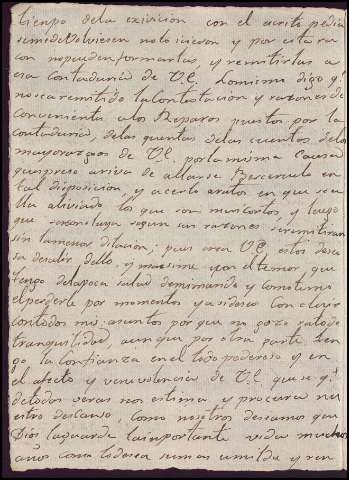 tienpo dela exivicion con el escrito pedia
se me debolviesen no lo icieron y por esta ra
con no pueden formarlas, y remitirlas a
esa contaduria de V.E. Lo mismo digo q.e
no sea remitido la Contestacion y razones de
combeniencia a los Reparos puestos por la
contaduria, delas quentas delas cuentas delos
mayorazgos de V.E. por la misma Causa
que espreso ariva de allarse Berceruelo en
tal disposicion, y acerto aratos en que se a
lla aliviado los que son mui cortos, y luego
que segun sus razones se remitiran
sin la menor dilacion; pues crea V.E. estoi desea
so de salir dello y maxime por el temor que
tengo dela poca salud de mi marido y como temo
el perderle por momentos ya si deseo Concluir
contodos mis asuntos por que no gozo ratode
tranquilidad, aun que por otra parte ten
go la Confianza en el todo poderoso y en
el afecto y venevolencia de V.E. que se q.e
detodas veras nos estima y procura nu
estro descanso, como nosotros deseamos que
Dios la guarde la importante vida muchos
años como lo desea su mas umilde y ren